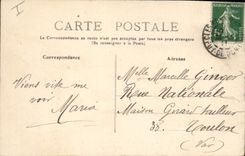 I
CARTE POSTALE
La Correspondance au recto n'est pas acceptée par tous les pays étrangers
(Se renseigner à la Poste)
Correspondance
Adresse:
Viens vite me
voir
Maria
Melle Marcelle
Rue Nationale
Maison Gérard tailleur
32. Toulon
(Var)